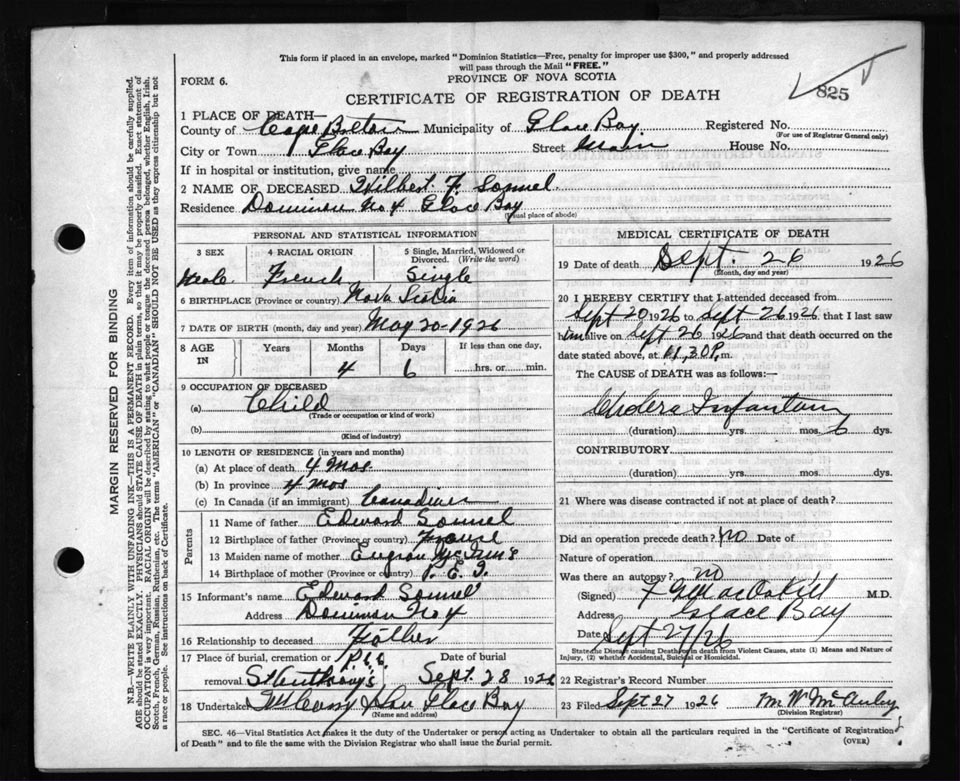 This form if placed in an envelope, marked "Dominion Statistics—Free, penalty for improper use $300," and properly addressed
will pass through the Mail "FREE."
FORM 6.
PROVINCE OF NOVA SCOTIA
825
CERTIFICATE OF REGISTRATION OF DEATH
1 PLACE OF DEATH—
County of Cape Breton Municipality of Glace Bay Registered No.
(For use of Registrar General only)
City or Town Glace Bay Street Main House No.
If in hospital or institution, give name
2 NAME OF DECEASED Wilbert F.
Residence Dominion No 4 Glace Bay
(Usual place of abode)
PERSONAL AND STATISTICAL INFORMATION
3 SEX 4 RACIAL ORIGIN 5 Single, Married, Widowed or Divorced. (Write the word)
Male French Single
6 BIRTHPLACE (Province or country) Nova Scotia
7 DATE OF BIRTH (month, day and year) May 20-1926
8 AGE IN Years Months Days If less than one day,
4 6 hrs. or min.
9 OCCUPATION OF DECEASED
(a) Child
(Trade or occupation or kind of work)
(b)
(Kind of industry)
10 LENGTH OF RESIDENCE (in years and months)
(a) At place of death 4 Mos
(b) In province 4 Mos
(c) In Canada (if an immigrant)
Parents
11 Name of father Edward
12 Birthplace of father (Province or country) France
13 Maiden name of mother
14 Birthplace of mother (Province or country) P.E.I.
15 Informant's name Edward
Address Dominion No 4
16 Relationship to deceased Father
17 Place of burial, cremation or removal St Anthony's Date of burial Sept. 28 1926
18 Undertaker Glace Bay
(Name and address)
MEDICAL CERTIFICATE OF DEATH
19 Date of death Sept. 26 1926
(Month, day and year)
20 I HEREBY CERTIFY that I attended deceased from
Sept 20 1926 to Sept 26 1926 that I last saw
him alive on Sept 26 1926 and that death occurred on the
date stated above, at 11,30 P. m.
The CAUSE of DEATH was as follows:—
Cholera Infantum
(duration) yrs. mos. 6 dys.
CONTRIBUTORY
(duration) yrs. mos. dys.
21 Where was disease contracted if not at place of death?
Did an operation precede death? no Date of
Nature of operation
Was there an autopsy? no
(Signed) MacAskill M.D.
Address Glace Bay
Date Sept 27/26
State the Disease causing Death, or in death from Violent Causes, state (1) Means and Nature of
Injury, (2) whether Accidental, Suicidal or Homicidal.
22 Registrar's Record Number
23 Filed Sept 27 1926 M W McAuley
(Division Registrar)
SEC. 46—Vital Statistics Act makes it the duty of the Undertaker or person acting as Undertaker to obtain all the particulars required in the "Certificate of Registration
of Death" and to file the same with the Division Registrar who shall issue the burial permit.
(OVER)
MARGIN RESERVED FOR BINDING
N.B.—WRITE PLAINLY WITH UNFADING INK—THIS IS A PERMANENT RECORD. Every item of information should be carefully supplied.
AGE should be stated EXACTLY. PHYSICIANS should STATE CAUSE OF DEATH in plain terms, so that it may be properly classified. Exact statement of
OCCUPATION is very important. RACIAL ORIGIN will be described by stating to what people or tongue the deceased person belonged, whether English, Irish,
Scotch, French, German, Russian, Ruthenian, etc. The terms "AMERICAN" or "CANADIAN" SHOULD NOT BE USED as they express citizenship but not
a race or people. See instructions on back of Certificate.